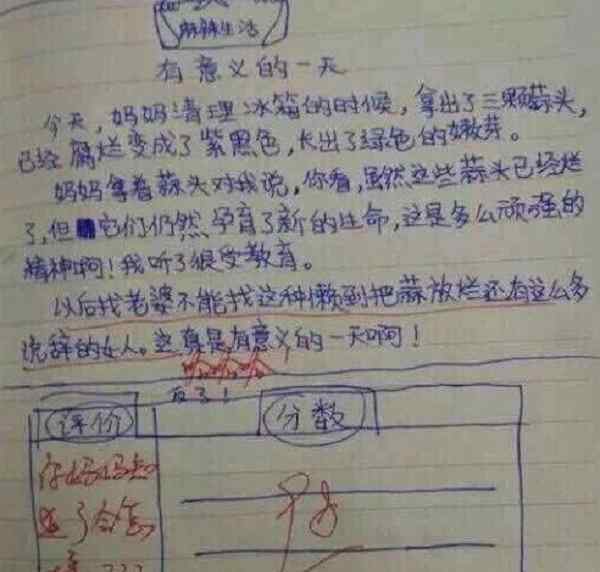 麻辣生活
有意义的一天
今天，妈妈清理冰箱的时候，拿出了三颗蒜头，
已经腐烂变成了紫黑色，长出了绿色的嫩芽。
妈妈拿着蒜头对我说，你看，虽然这些蒜头已经烂
了，但它们仍然孕育了新的生命，这是多么顽强的
精神啊！我听了很受教育。
以后找老婆不能找这种懒到把蒜放烂还有这么多
说辞的女人。这真是有意义的一天啊！
哈哈哈
评价
分数
你妈妈知
道了会怎